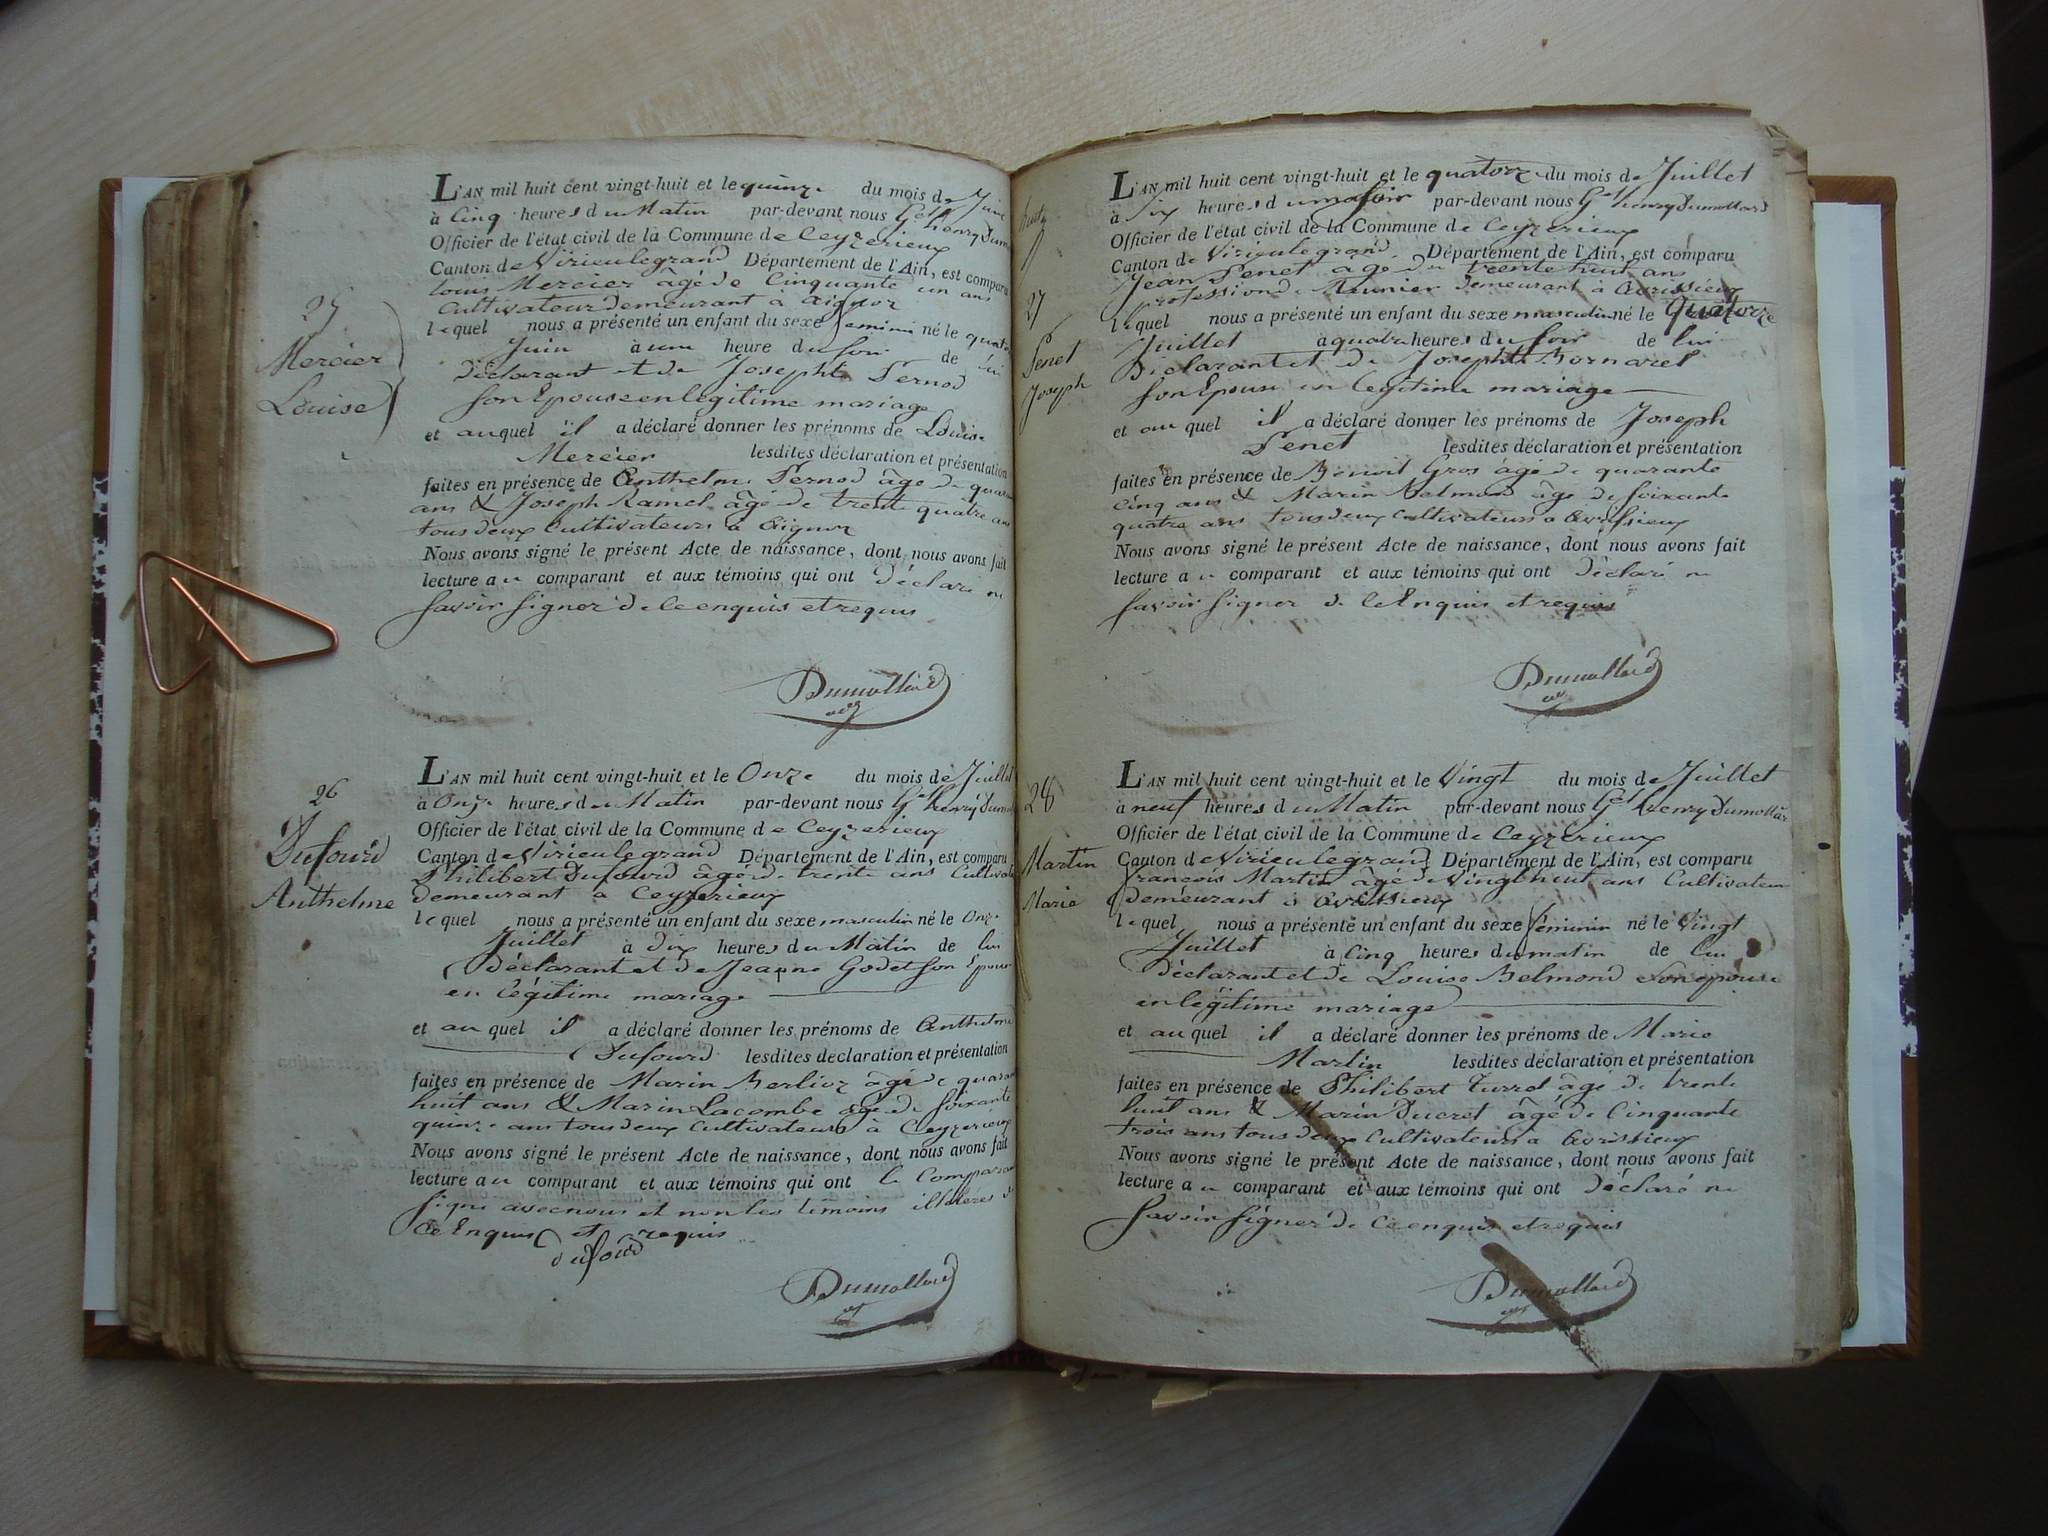 L'AN mil huit cent vingt-huit et le quinze du mois de Juin
à Cinq heures du Matin par-devant nous Gel henry Dum
Officier de l'état civil de la Commune de Ceyzerieux
Canton de Virieulegrand Département de l'Ain, est comparu
Louis Mercier âgé de Cinquante un ans
Cultivateur demeurant à aignoz
lequel nous a présenté un enfant du sexe feminin né le quator
Juin à une heure du soir de lui
déclarant et de Josephte Pernod
son Epouse en légitime mariage
et auquel il a déclaré donner les prénoms de Louise
Mercier lesdites déclaration et présentation
faites en présence de Anthelme Pernod âgé de quaran
ans & Joseph Ramel âgé de trente quatre ans
tous deux Cultivateurs à aignoz
Nous avons signé le présent Acte de naissance, dont nous avons fait
lecture au comparant et aux témoins qui ont Déclaré ne
savoir signer de ce enquis et requis
Dumollard
Mercier
Louise
26
Dufourd
Anthelme
L'AN mil huit cent vingt-huit et le Onze du mois de Juillet
à Onze heures du Matin par-devant nous Gel henry Dumo
Officier de l'état civil de la Commune de Ceyzerieux
Canton de Virieulegrand Département de l'Ain, est comparu
Philibert Dufourd âgé de trente ans Cultivate
demeurant à Ceyzerieux
lequel nous a présenté un enfant du sexe masculin né le Onze
Juillet à dix heures du Matin de lui
déclarant et de Jeanne Godet son Epouse
en légitime mariage
et auquel il a déclaré donner les prénoms de Anthelme
Dufourd lesdites declaration et présentation
faites en présence de Marin Berlioz âgé de quaran
huit ans & Marin Lacombe âgé de soixante
quinze ans tous deux Cultivateurs à Ceyzerieux
Nous avons signé le présent Acte de naissance, dont nous avons fait
lecture au comparant et aux témoins qui ont le Comparan
signé avec nous et non les témoins illiteres de
ce Enquis et requis
dufourd
Dumollard
27
Penet
Joseph
L'AN mil huit cent vingt-huit et le quatorze du mois de Juillet
à Six heures du soir par-devant nous Gel henry Dumollard
Officier de l'état civil de la Commune de Ceyzerieux
Canton de Virieulegrand Département de l'Ain, est comparu
Jean Penet âgé de trente huit ans
profession de Meunier demeurant à Avrissieux
lequel nous a présenté un enfant du sexe masculin né le Quatorze
Juillet à quatre heures du soir de lui
Déclarant et de Josephte Bornarel
son Epouse en légitime mariage
et auquel il a déclaré donner les prénoms de Joseph
Penet lesdites déclaration et présentation
faites en présence de Benoit Gros âgé de quarante
Cinq ans & Marin Belmond âgé de soixante
quatre ans tous deux Cultivateurs à Avrissieux
Nous avons signé le présent Acte de naissance, dont nous avons fait
lecture au comparant et aux témoins qui ont Déclaré ne
savoir signer de ce Enquis et requis
Dumollard
28
Martin
Marie
L'AN mil huit cent vingt-huit et le Vingt du mois de Juillet
à neuf heures du Matin par-devant nous Gel henry Dumollar
Officier de l'état civil de la Commune de Ceyzerieux
Canton de Virieulegrand Département de l'Ain, est comparu
francois Martin âgé de Vingt huit ans Cultivateur
demeurant à Avrissieux
lequel nous a présenté un enfant du sexe féminin né le Vingt
Juillet à Cinq heures du matin de lui
déclarant et de Louise Belmond son epouse
en légitime mariage
et auquel il a déclaré donner les prénoms de Marie
Martin lesdites déclaration et présentation
faites en présence de Philibert Turrel âgé de trente
huit ans & Marin Ducret âgé de Cinquante
trois ans tous deux Cultivateurs à Avrissieux
Nous avons signé le présent Acte de naissance, dont nous avons fait
lecture au comparant et aux témoins qui ont Déclaré ne
savoir signer de ce enquis et requis
Dumollard